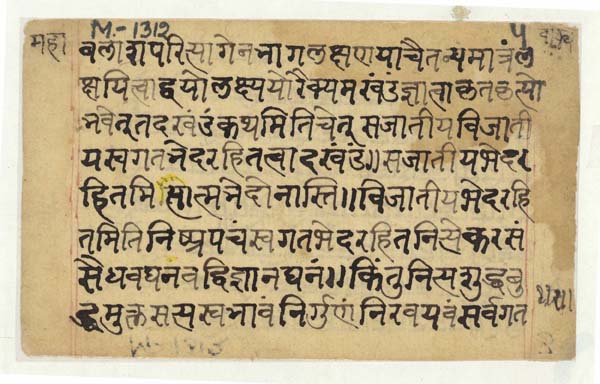 M.-1312
महा
परित्यागेनभागलक्षणयाचैतन्यमात्रंल
क्षयित्वाद्वयोलक्ष्ययोरैक्यमखंडंज्ञात्वाकृतकृत्यो
भवेत्तदखंडंकथमितिचेत् सजातीयविजाती
यस्वगतभेदरहितत्वादखंडं॥सजातीयभेदर
हितमि त्मभेदोनास्ति॥विजातीयभेदरहि
तमितिनिष्प्रपचंस्वगतभेदरहितनित्येकरसं
सैधवघनवद्विज्ञानघनं॥किंतुनित्यशुद्धबु
द्धमुक्तसत्यस्वभावंनिर्गुणंनिरवयवंसर्वगत